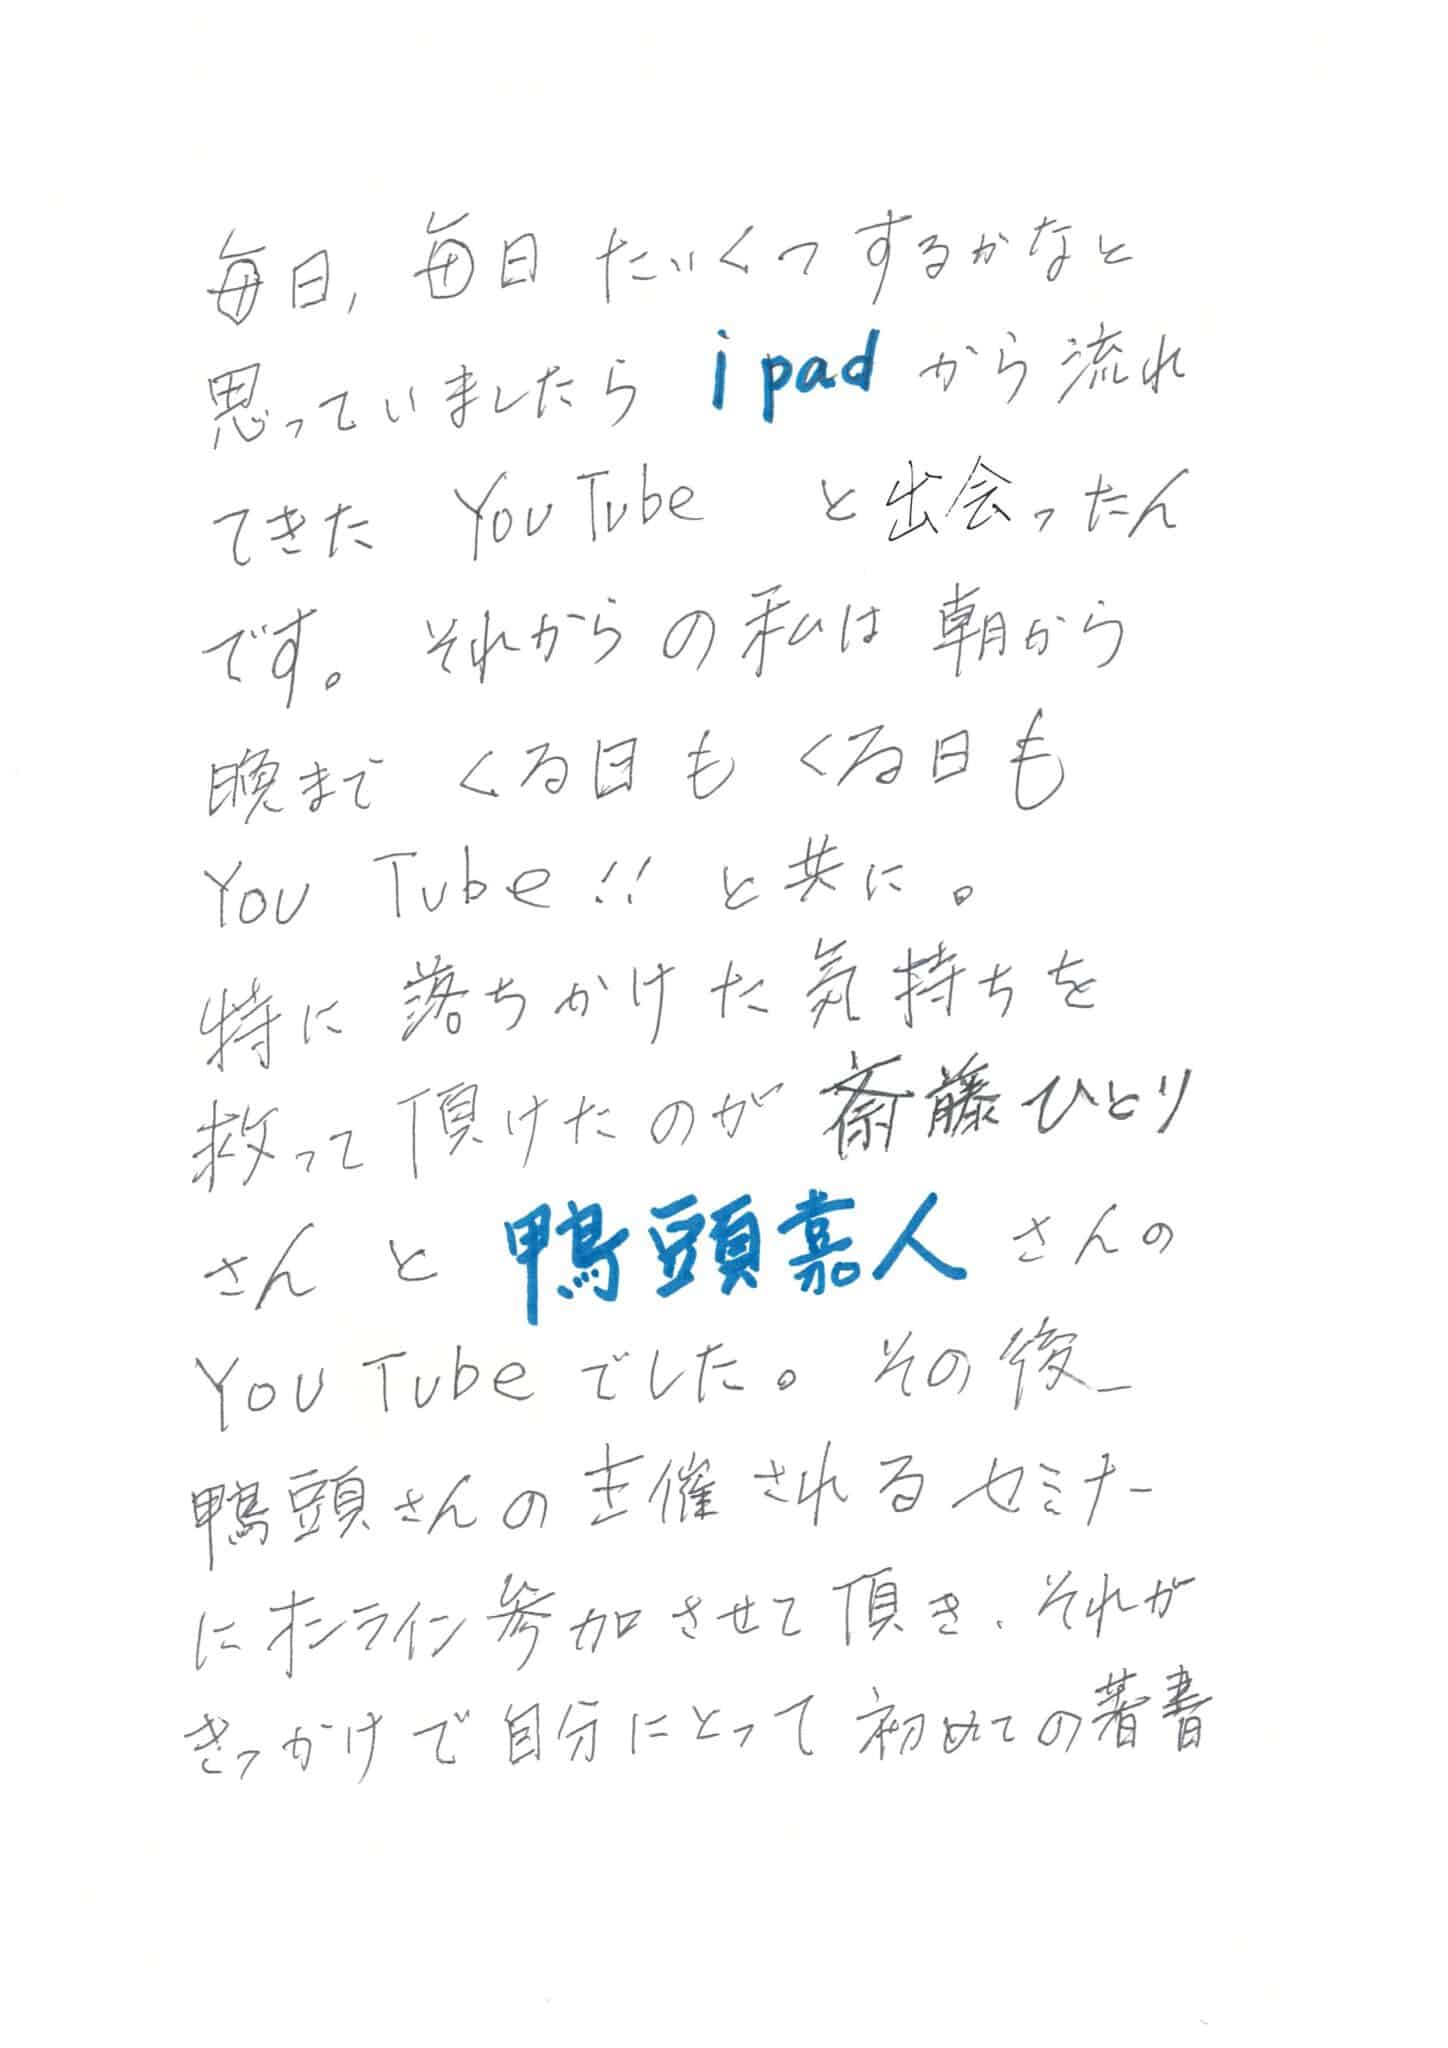 毎日, 毎日 たいくつするかなと
思っていましたら ipadから流れ
てきた YouTube と出会ったん
です。それからの私は 朝から
晩まで くる日も くる日も
You Tube!! と共に。
特に 落ちかけた気持ちを
救って頂けたのが 斎藤ひとり
さんと 鴨頭嘉人さんの
You Tubeでした。その後_
鴨頭さんの主催されるセミナー
にオンライン参加させて頂き、それが
きっかけで自分にとって初めての著書